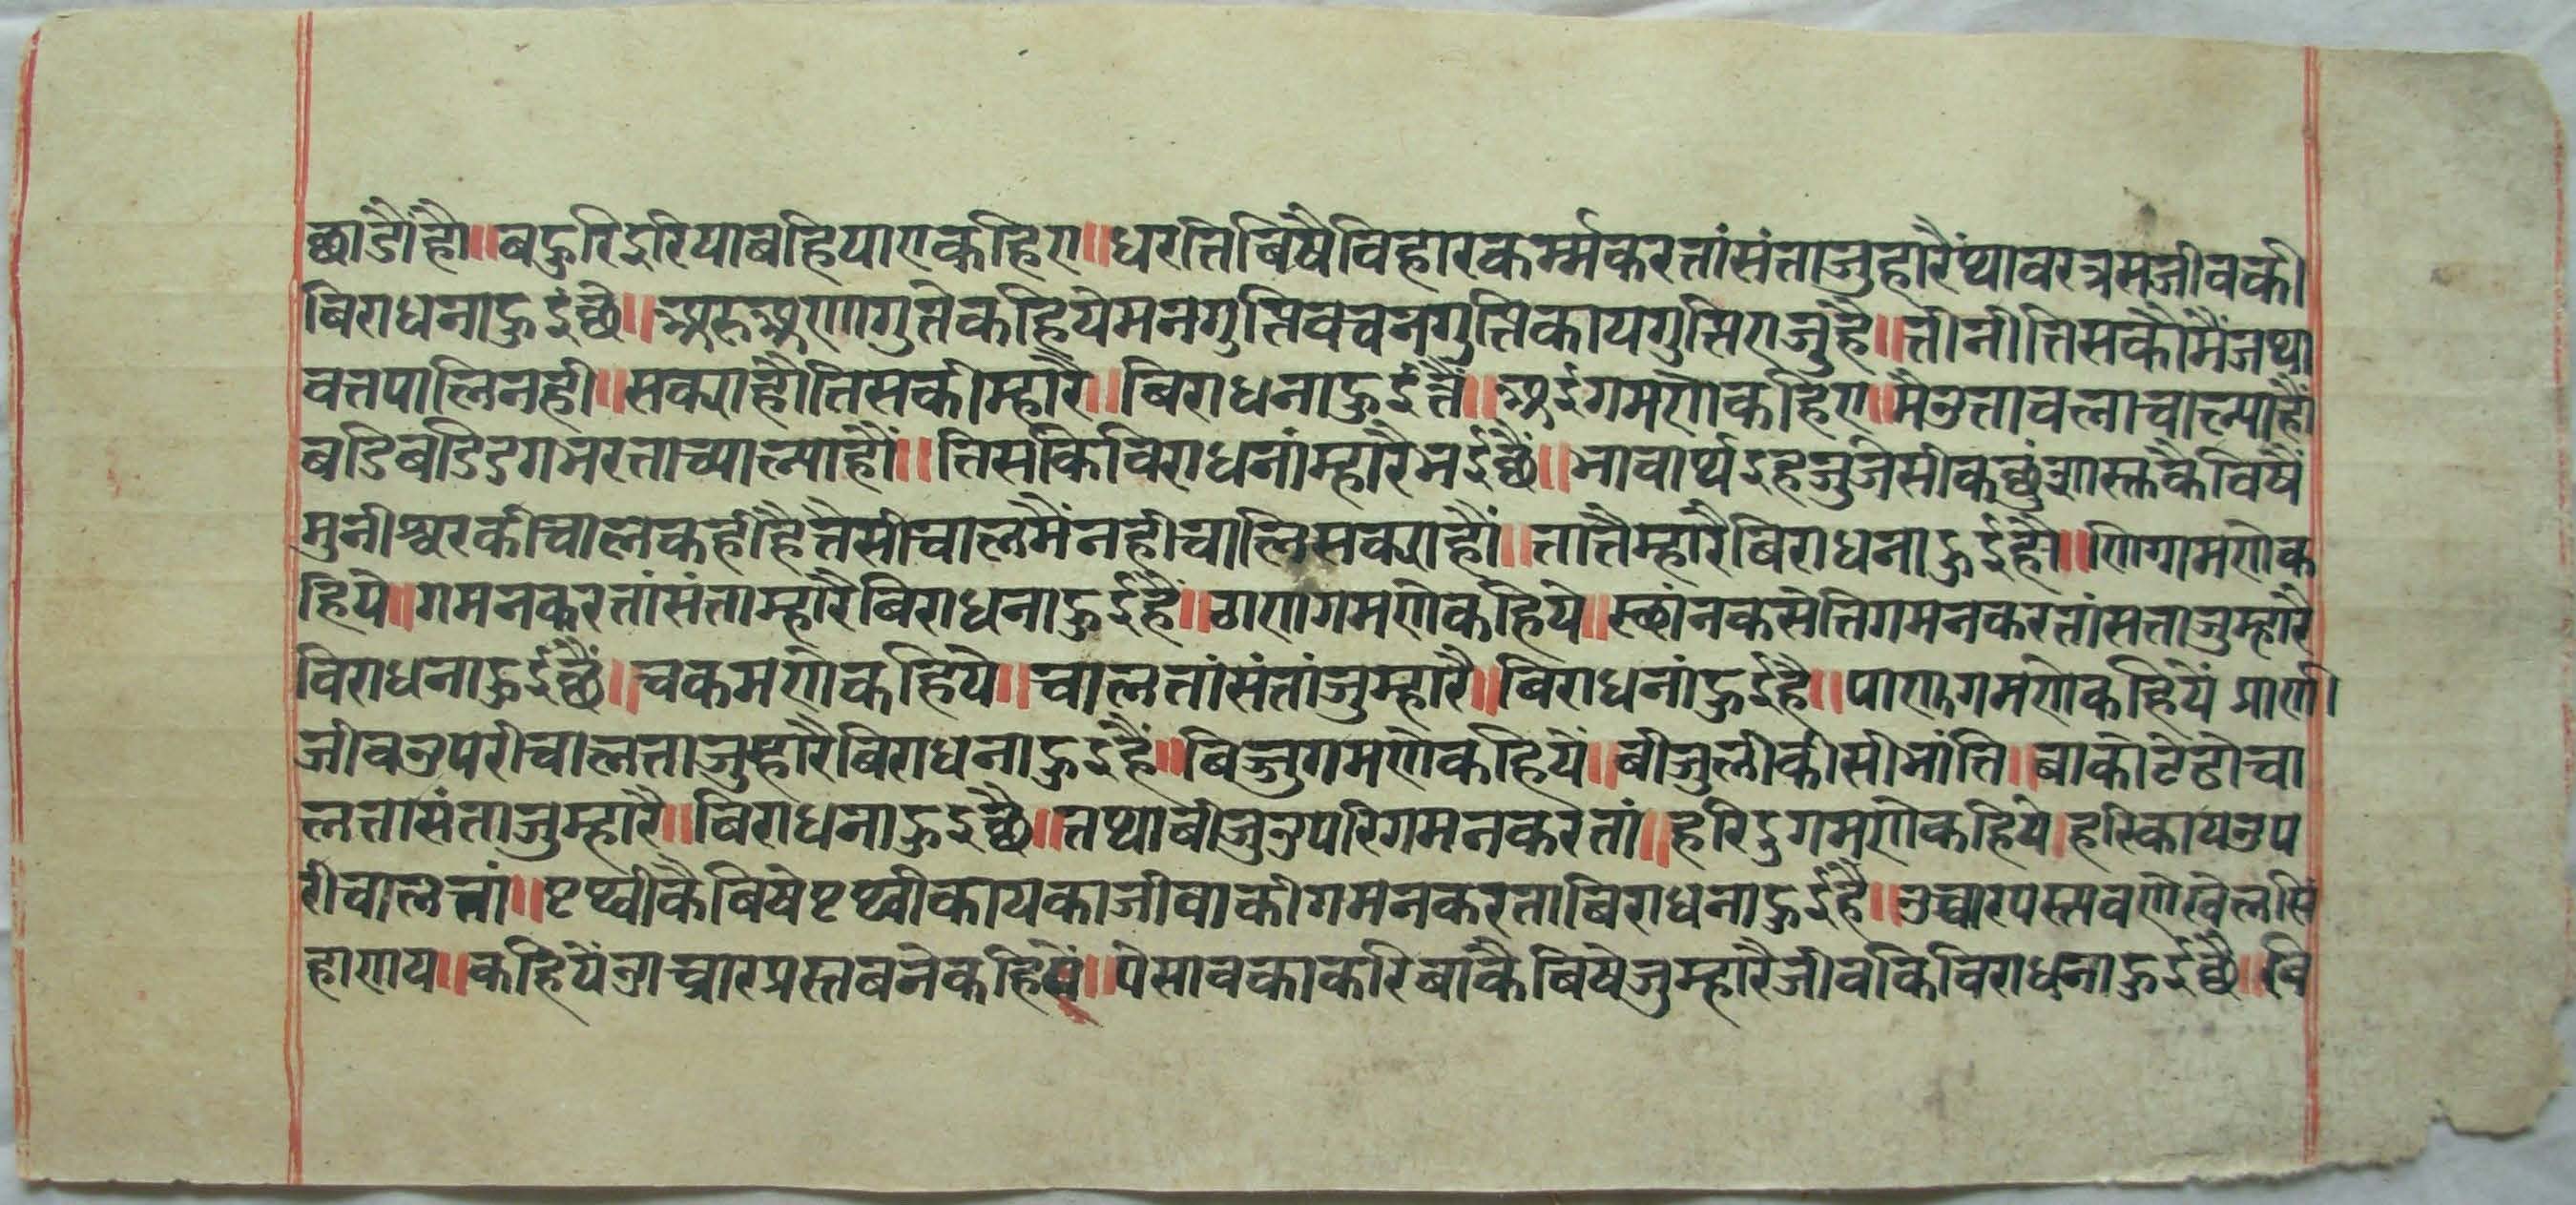 छाडौंहौ॥बहुरिइरियाबहियाएकहिए॥धरतिबिषैविहारकर्म्मकरतांसंताजुहारैंथावरत्रसजीवकी
बिराधनाहुइंछै॥अरुअणागुतेकहियेमनगुत्तिवचनगुत्तिकायगुत्तिएजुहै॥तीनीतिसकौमैंजथा
वतपालिनही॥सक्याहौतिसकीम्हारै॥बिराधनाहुईतै॥अईगमणेकहिए॥मैउतावलाचाल्याहौं
बडिबडिडगभरताच्याल्याहौं॥तिसकिविराधनांम्हारैभईछै॥भावार्थइहजुजैसीकछुंशास्त्रकैविषैं
मुनीश्वरकीचालकहीहैतैसीचालमैंनहीचालिसक्याहौं॥तातैम्हारैबिराधनाहुईहौ॥णिग्गमणेक
हिये॥गमनकरतांसंताम्हारैबिराधनाहुईहै॥ठाणगमणेकहिये॥स्छांनकसेतिगमनकरतांसताजुम्हारै
विराधनाहुईछै॥चकमणेकहिये॥चालतांसंतांजुम्हारै॥बिराधनांहुईहै॥पाणगमणेकहियें प्राणी
जीवउपरीचालताजुम्हारैबिराधनाहुइहै॥बिज्जुगमणेकहियें॥बीजुलीकीसीभांति॥बाकोटेढोचा
लतासंताजुम्हारै॥बिराधनाहुइछै॥तथाबीजुउपरिगमनकरतां॥हरिदुगमणेकहिये।हरिकायउप
रीचालतां॥पृथ्वीकैबिषेपृथ्वीकायकाजीवाकीगमनकरताबिराधनाहुईहै॥उच्चारपस्सवणेखेलसिं
हाणय॥कहियेंउाच्चारप्रस्तबनेकहिये॥पेसाबकाकरिबाकैबिषेजुम्हारैजीवकिविराधनाहुईछै॥बि